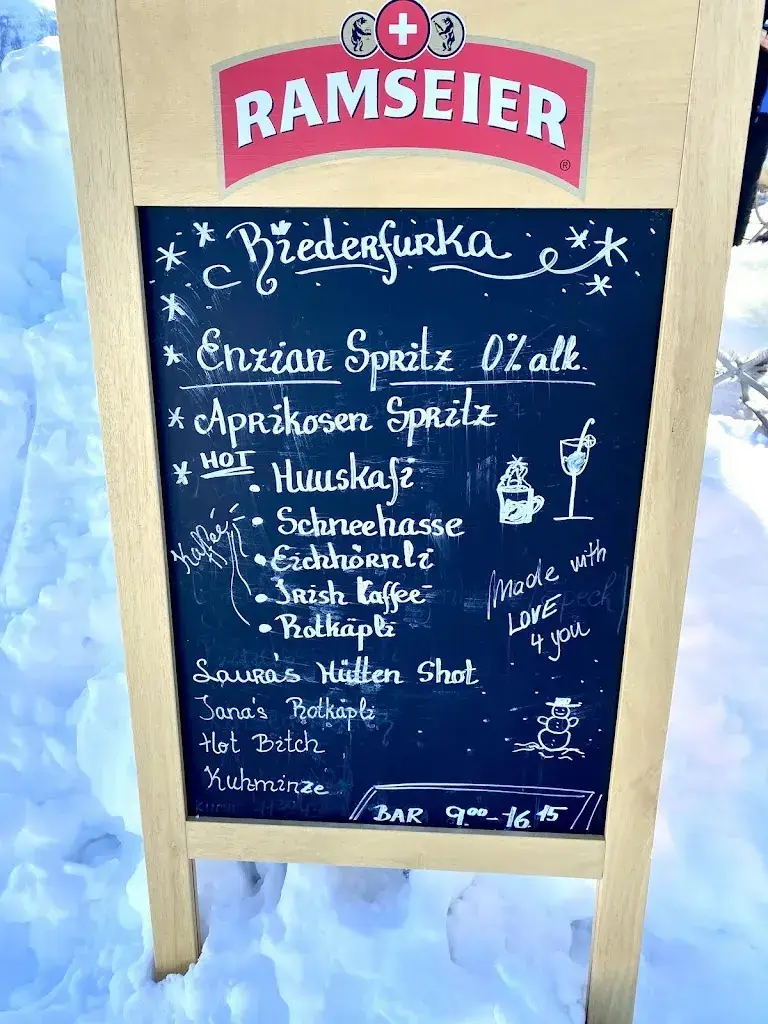 RAMSEIER
®
Riederfurka
Enzian Spritz 0% alk.
Aprikosen Spritz
HOT
Kaffee
Huuskafi
Schneehasse
Eichhörnli
Irish Kaffee
Rotkäpli
Made with
LOVE
4 you
Laura's Hütten Shot
Jana's Rotkäpli
Hot Bitch
Kuhminze
BAR 9.00-16.15